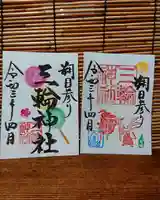 朔日参り
三輪神社
令和三年四月
朔日参り
三輪
令和三年四月